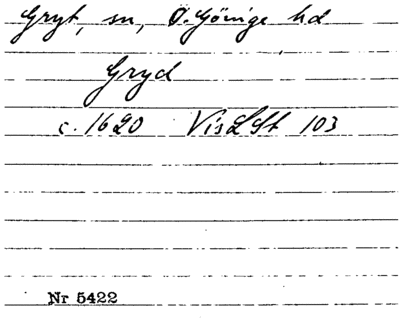 Gryt, sn, Ö. Göinge hd
Gryd
c. 1620 VisLSt 103
Nr 5422